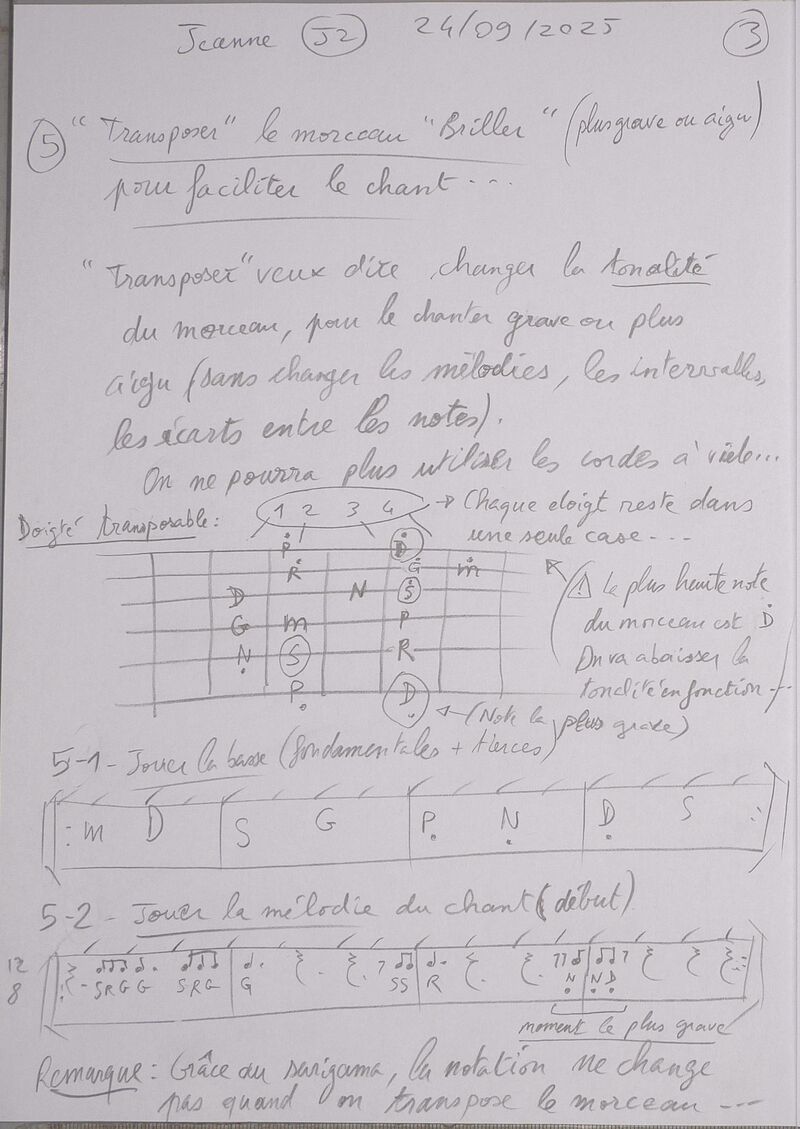 Jeanne J2 24/09/2025 3
5 "Transposer" le morceau "Briller" (plus grave ou aigu)
pour faciliter le chant...
"Transposer" veux dire changer la tonalité
du morceau, pour le chanter grave ou plus
aigu (sans changer les mélodies, les intervalles,
les écarts entre les notes).
On ne pourra plus utiliser les cordes à vide...
Doigté transposable : 1 2 3 4 → Chaque doigt reste dans
une seule case...
P D
R G m
D N S
G m P
N S R
P D
⚠ Le plus haute note
du morceau est D
On va abaisser la
tonalité en fonction...
(Note la plus grave)
5-1- Jouer la basse (fondamentales + tierces)
: m D S G P N D S :
5-2- Jouer la mélodie du chant (début)
12
8
S R G G S R G G S S R N N D
moment le plus grave
Remarque : Grâce au sarigama, la notation ne change
pas quand on transpose le morceau ...